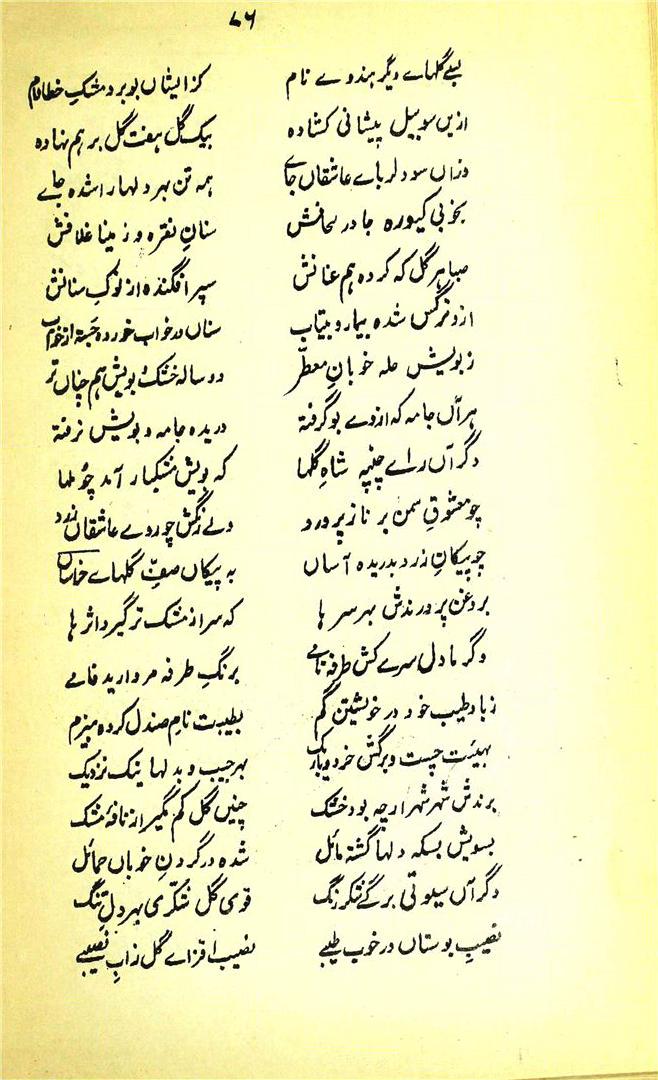 ۷۶
بسے گلہاے دیگر ہندوے نام کز ایشاں بو برد مشکِ خطا فام
ازیں سو بیل پیشانی کشادہ بیک گل ہفت گل برہم نہادہ
وزاں سو دلرباے عاشقاں جاے ہمہ تن بہر دلہا را شدہ جاے
بخوبی کیورہ جا در سنان نقرہ و ز مینا غلافش
صبا ہر گل کہ کردہ ہم عنانش سپر افگندہ از نوکِ سنانش
ازو نرگس شدہ بیمار و بیتاب سناں در خواب خوردہ جستہ از خواب
ز بویش حلہ خوبانِ معطر دو سالہ خشک و بویش ہم چناں تر
ہر آں جامہ کہ ازوے بو گرفتہ دریدہ جامہ و بویش نرفتہ
دگر آں راے چنپہ شاہِ گلہا کہ بویش مشکبار آمد چو ملہا
چو معشوقِ سمن بر ناز پرورد ولے رنگش چو روے عاشقاں زرد
چو پیکانِ زرد بدریدہ آساں بہ پیکاں صفِّ گلہاے خراساں
بروغن پرورندش بہر سرہا کہ سر از مشک تر گیرد اثرہا
دگر مادل سرے کش طرفہ نامے برنگِ طرفہ مروارید فامے
زباد طیب خود در خویشتن گم بطیبت نامِ صندل کردہ ہیزم
بہیئت چست و برگش خرد و باریک بہر جیب و بدلہا نیک نزدیک
برندش شہر شہر ارچہ بود خشک چنیں گل کم مگیر از نافۂ مشک
بسویش بسکہ دلہا گشتہ مائل شدہ در گردنِ خوباں حمائل
دگر آں سیوتی برگے شکر رنگ قوی گل شکّری بہر دلِ تنگ
نصیبِ بوستاں در خوب طیبے نصیب افزاے گل زاب نصیبے